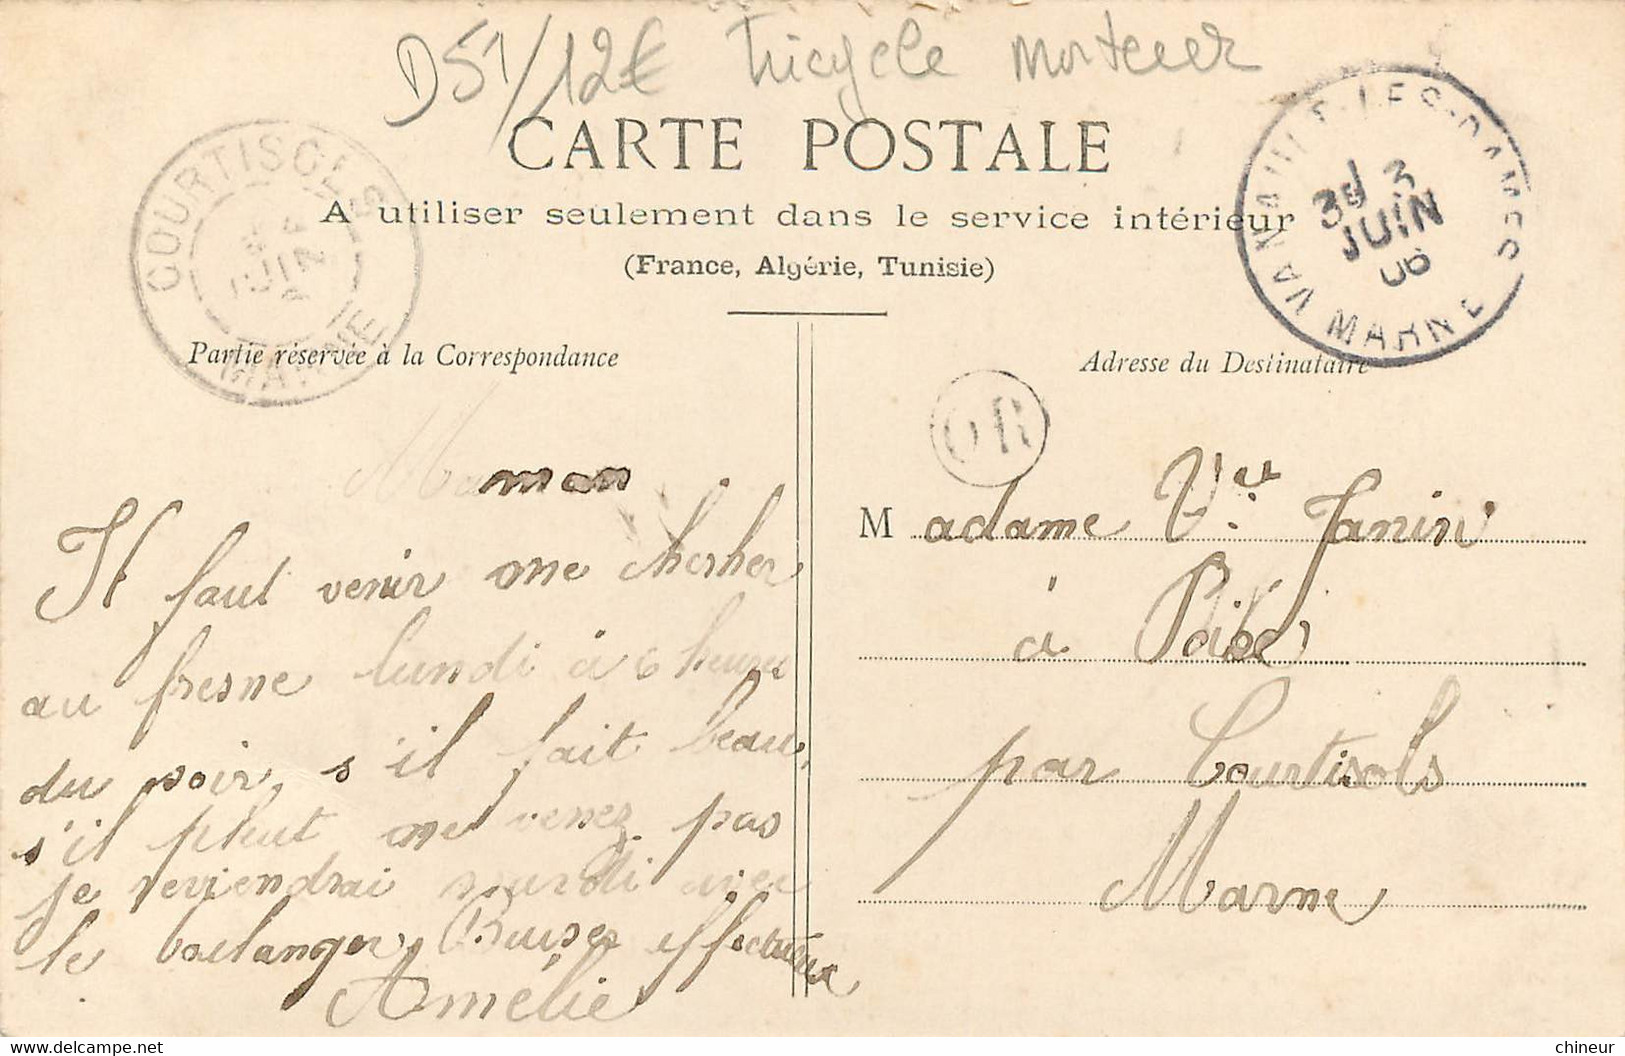 D51/12€ Tricycle Moteur
CARTE POSTALE
A utiliser seulement dans le service intérieur
(France, Algérie, Tunisie)
COURTISOLS
MARNE
JUIN
VANAULT-LES-DAMES
3
JUIN
06
MARNE
Partie réservée à la Correspondance
Adresse du Destinataire
OR
Maman
Il faut venir me cherher
au fresne lundi à 6 heures
du soir, s'il fait beau,
s'il pleut ne venez pas
je reviendrai mardi avec
le boulanger, Baisers affectueux
Amélie
Madame Vve Janin
à
par Courtisols
Marne
chineur